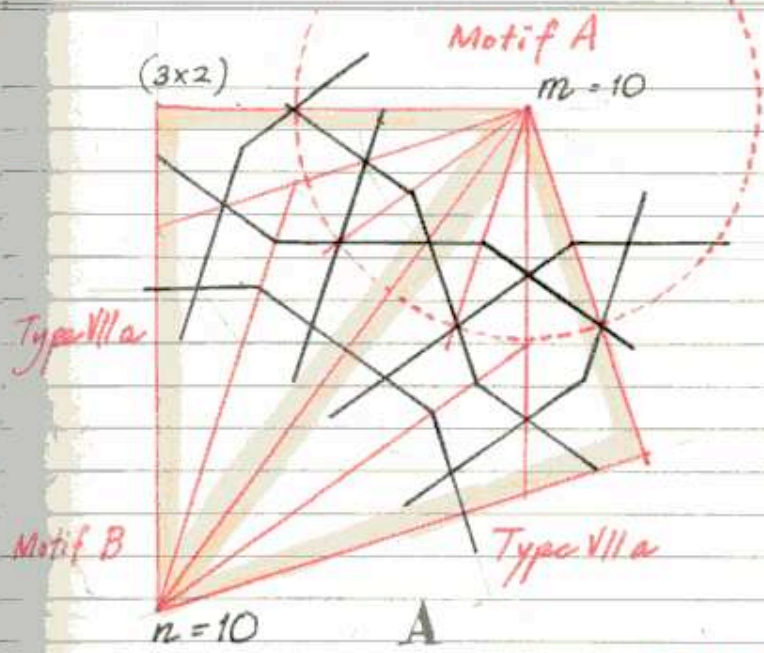 Motif A
(3×2)
m = 10
Type VII a
Motif B
Type VII a
n = 10
A